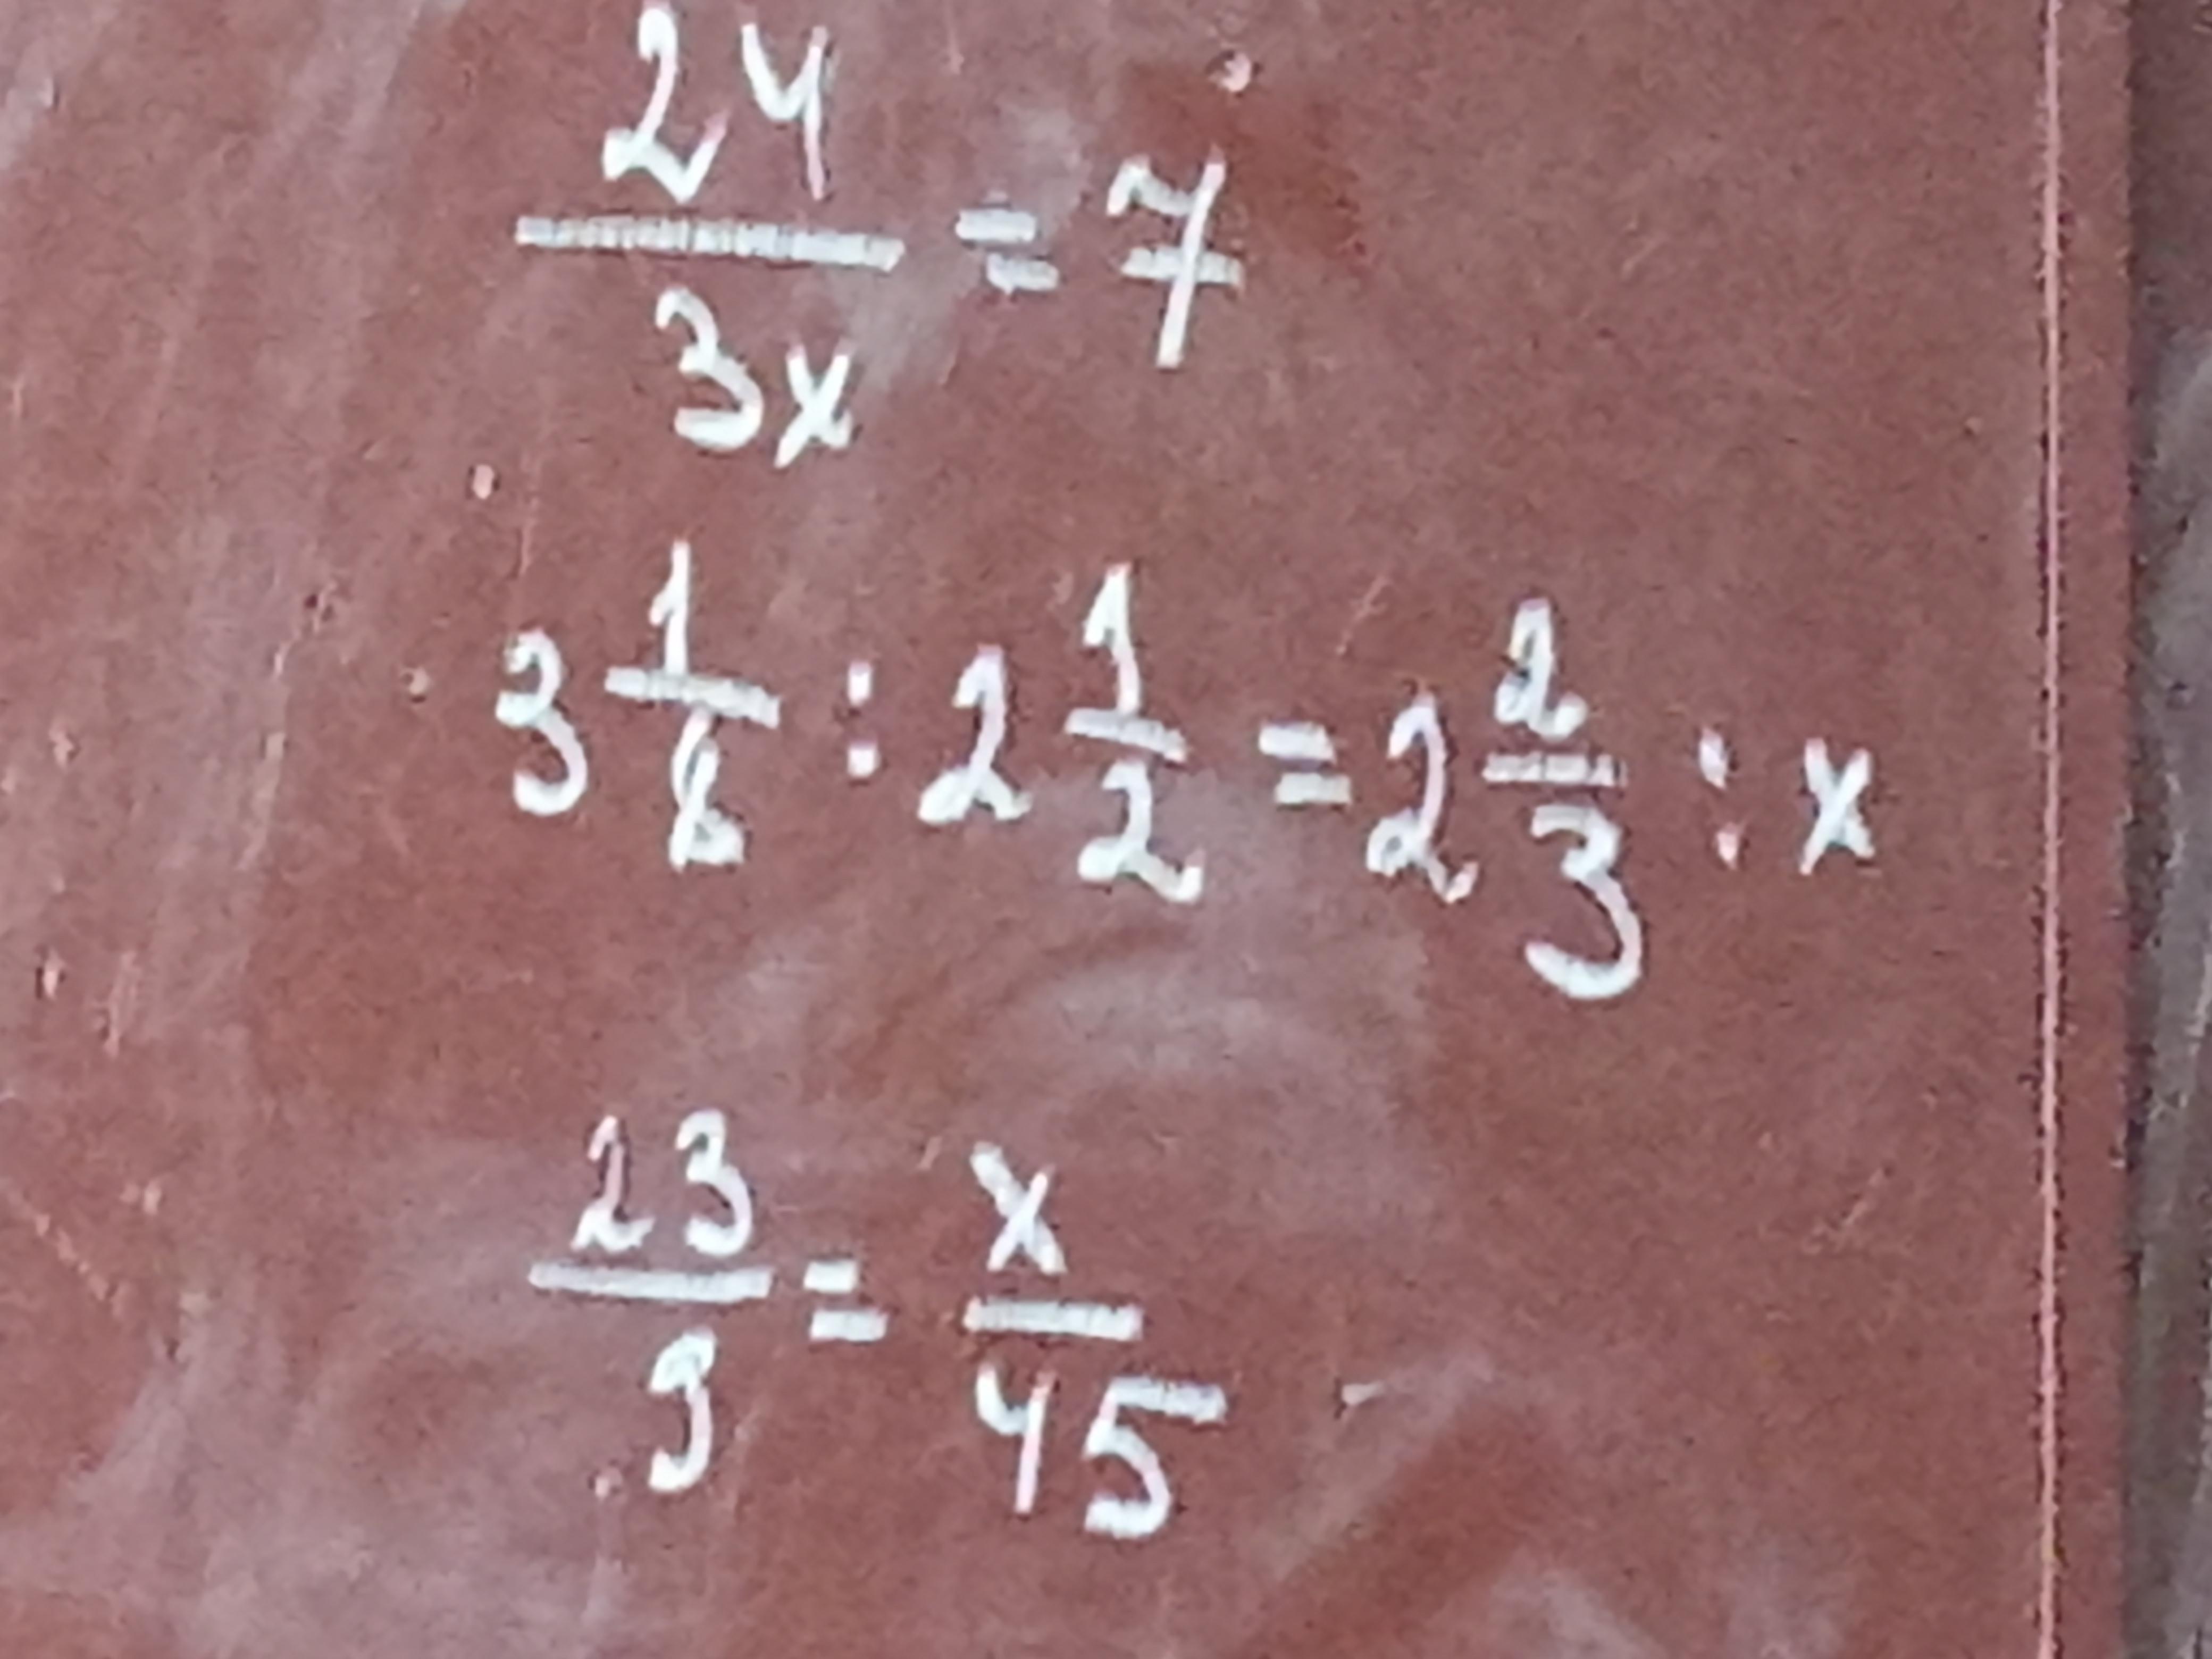 24/3x = 7
3 1/2 : 2 1/2 = 2 2/3 : x
23/9 = x/45